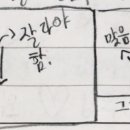 잘라야
함.
많음
그